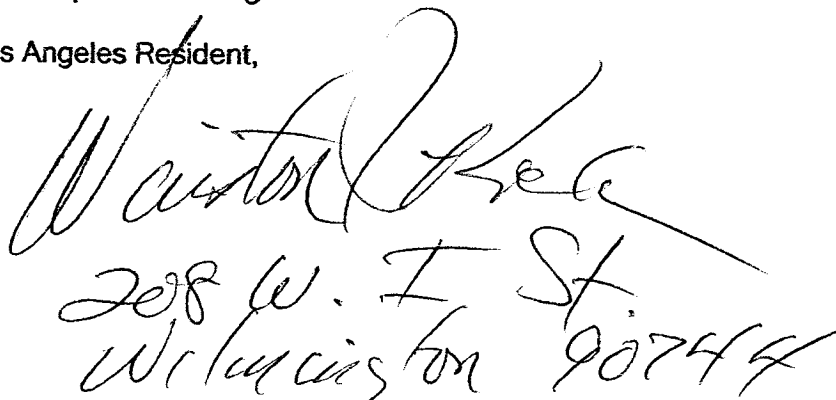 s Angeles Resident,
Winston
208 W. I St.
Wilmington 90744